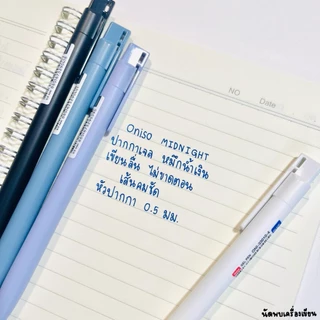 NO    Date
Oniso MIDNIGHT
ปากกาเจล หมึกน้ำเงิน
เขียนลื่น ไม่ขาดตอน
เส้นคมชัด
หัวปากกา 0.5 มม.
นัดพบเครื่องเขียน